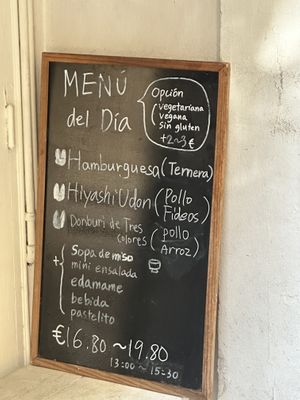 MENÚ
del Día
Opción
vegetariana
vegana
sin gluten
+2~3€
Hamburguesa (Ternera)
Hiyashi Udon (Pollo
Fideos)
Donburi de Tres
colores (pollo
Arroz)
+ Sopa de miso
mini ensalada
edamame
bebida
pastelito
€16.80~19.80
13:00~15:30